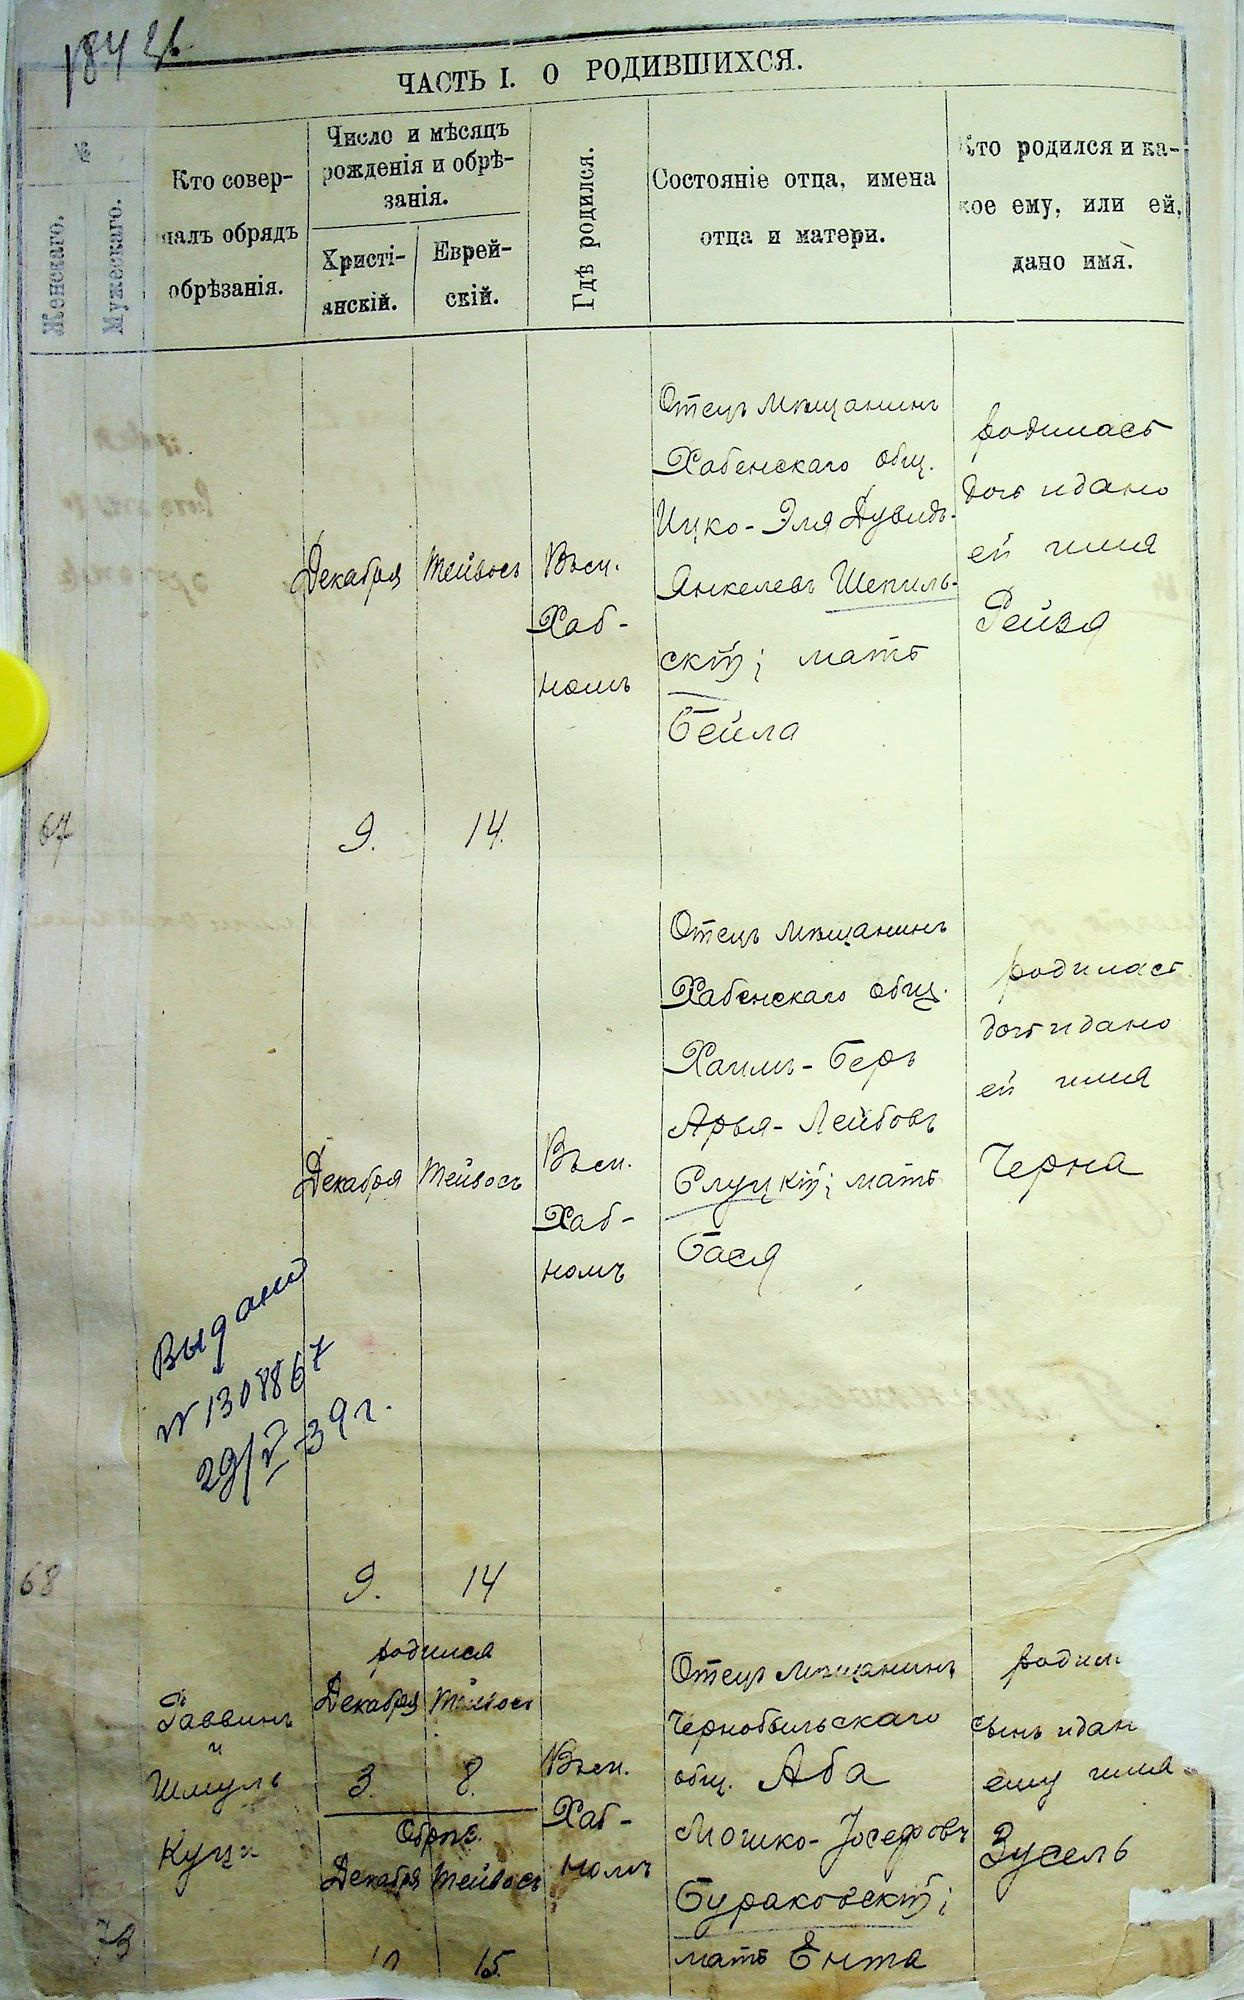 ЧАСТЬ I. О РОДИВШИХСЯ.
№
Женскаго.
Мужескаго.
Кто совер-
шалъ обрядъ
обрѣзанія.
Число и мѣсяцъ
рожденія и обрѣ-
занія.
Христі-
анскій.
Еврей-
скій.
Гдѣ родился.
Состояніе отца, имена
отца и матери.
Кто родился и ка-
кое ему, или ей,
дано имя.
67
Декабря
9.
Тейвосъ
14.
Въ м.
Хаб-
номъ
Отецъ мѣщанинъ
Хабенскаго общ.
Ицко-Эля Дувидъ-
Янкелевъ Шепиль-
скій; мать
Бейла
родилась
дочь и дано
ей имя
Рейзя
68
Декабря
9.
Тейвосъ
14
Въ м.
Хаб-
номъ
Отецъ мѣщанинъ
Хабенскаго общ.
Хаимъ-Беръ
Арья-Лейбовъ
Слуцкій; мать
Бася
родилась
дочь и дано
ей имя
Черна
Выдано
№ 1308867
29/V-39 г.
73
Раввинъ
и
Шмуль
родился
Декабря Тейвосъ
3. 8.
Обрѣз.
Декабря Тейвосъ
15.
Въ м.
Хаб-
номъ
Отецъ мѣщанинъ
Чернобыльскаго
общ. Аба
Мошко-Іосефовъ
Бураковскій;
мать Ента
родил
сынъ и дан
ему имя
Зусель